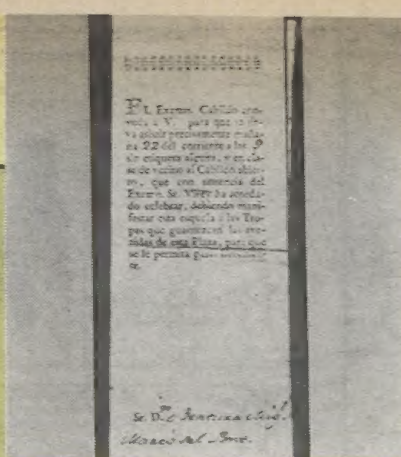 EL Excmo. Cabildo con-
voca á V. para que se sir-
va asistir precisamente maña-
na 22 del corriente a las 9
sin etiqueta alguna, y en cla-
se de vecino al Cabildo abier-
to, que con anuencia del
Excmo. Sr. Virey ha acorda-
do celebrar, debiendo mani-
festar esta esquela á las Tro-
pas que guarnecerán las ave-
nidas de esta Plaza, para que
se le permita pasar libremen-
te.
Sr. D.
Marcó del Pont.